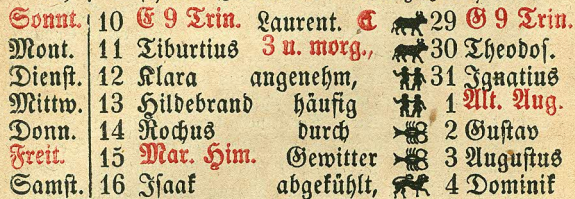 Sonnt. 10 E 9 Trin. Laurent. 29 G 9 Trin.
Mont. 11 Tiburtius 3 u. morg., 30 Theodos.
Dienst. 12 Klara angenehm, 31 Ignatius
Mittw. 13 Hildebrand häufig 1 Alt. Aug.
Donn. 14 Rochus durch 2 Gustav
Freit. 15 Mar. Him. Gewitter 3 Augustus
Samst. 16 Isaak abgekühlt, 4 Dominik